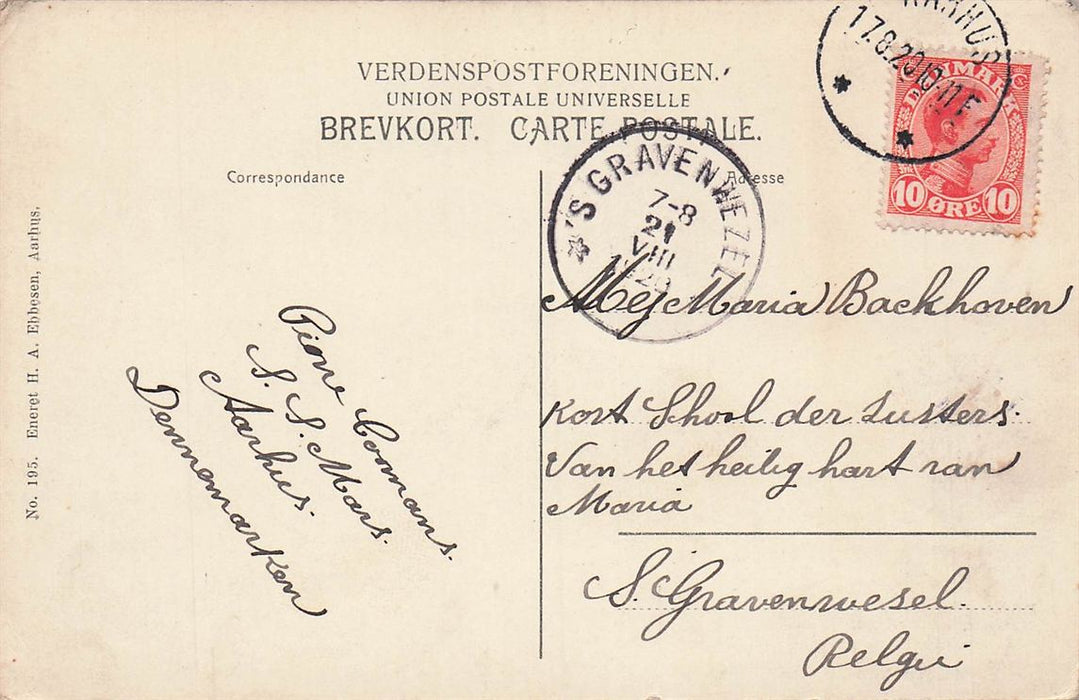 VERDENSPOSTFORENINGEN.
UNION POSTALE UNIVERSELLE
BREVKORT. CARTE POSTALE.
Correspondance
Adresse
AARHUS
17.8.20.10-11 F
DANMARK
10 ØRE 10
'S GRAVENWEZEL
7-8
21
VIII
Mej Maria Backhoven
Kost School der Zusters.
Van het heilig hart van
Maria
S. Gravenwesel.
Belgie
Pione Coomans.
S. S. Mars.
Aarhus.
Dennemarken
No. 195. Eneret H. A. Ebbesen, Aarhus.